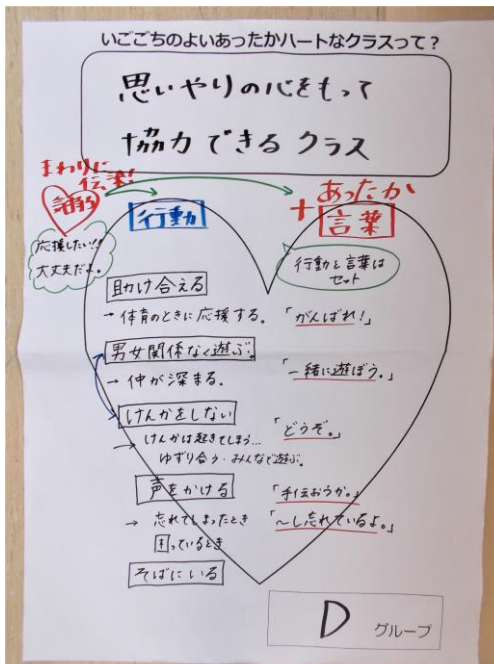 いごこちのよいあったかハートなクラスって？
思いやりの心をもって
協力できるクラス
まわりに
伝染!
感情
応援したい!!
大丈夫だよ。
行動
+
あったか
言葉
行動と言葉は
セット
助け合える
→ 体育のときに応援する。
「がんばれ！」
男女関係なく遊ぶ。
→ 仲が深まる。
「一緒に遊ぼう。」
けんかをしない
→ けんかは起きてしまう…
ゆずり合う・みんなで遊ぶ。
「どうぞ。」
声をかける
「手伝おうか。」
→ 忘れてしまったとき
「〜し忘れているよ。」
困っているとき
そばにいる
D グループ